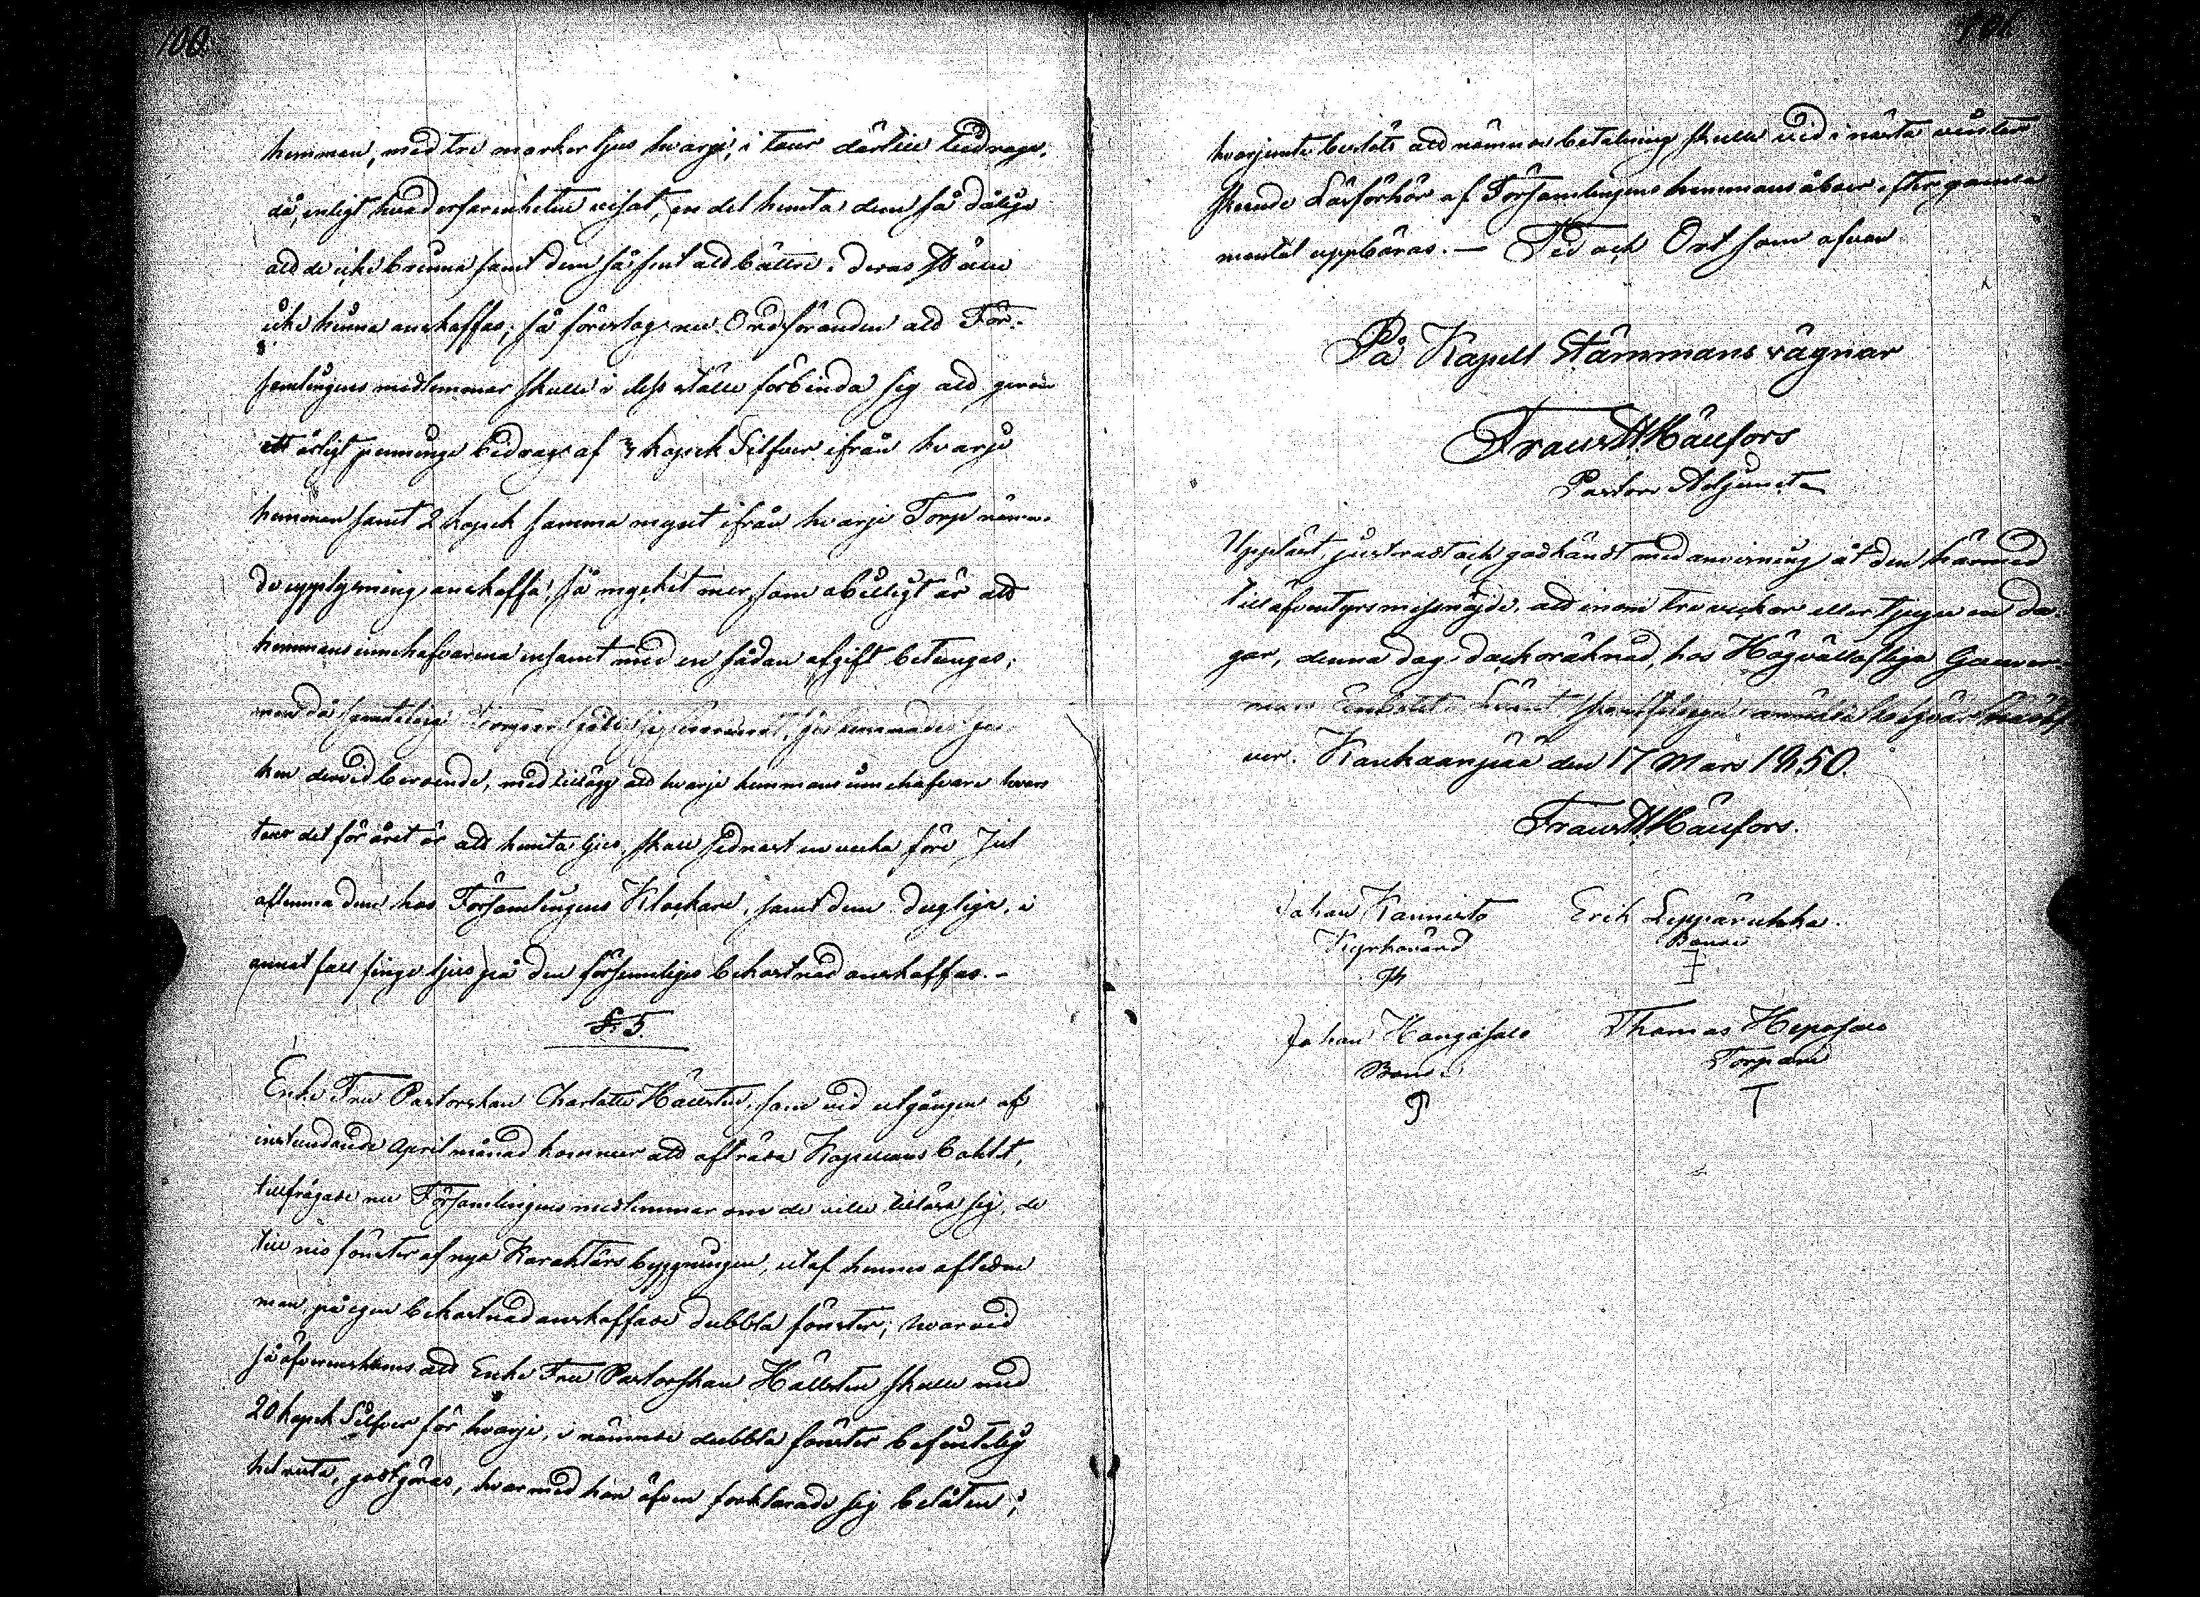 100.
hemman, med tre marker ljus hvarje, i tour därtill bidraga,
då, enligt hvad erfarenheten visat, en del hemta dem så dåliga
att de icke brinna samt dem så sent att bättre i deras ställe
icke hinna anskaffas; så föreslog nu Ordföranden att För-
samlingens medlemmar skulle i dess ställe förbinda sig att genom
ett årligt penninge bidrag af 3 kopek Silfver ifrån hvarje
hemman samt 2 kopek samma mynt ifrån hvarje Torp näm-
de upplysning anskaffa, så mycket mer, som obilligt är att
hemmans innehafvarena ensamt med en sådan afgift betungas;
men då
ken dervid beroende, med tillägg att hvarje hemmans innehafvare hvars
tour det för året är att hemta ljus, skall sednast en vecka före Jul
aflemna dem hos Församlingens Klockare, samt dem dugliga, i
annat fall finge ljus på den försumliges bekostnad anskaffas. -
§ 5.
Enke Fru Pastorskan Charlotta Hällsten, som vid utgången af
instundande April månad kommer att afträda Kapellans bohlet,
tillfrågade nu Församlingens medlemmar om de ville tillösa sig, de
till nio fönster af nya Karaktärs byggningen, utaf hennes aflidne
man, på egen bekostnad anskaffade dubbla fönster; hvarvid
så öfverenskoms att Enke Fru Pastorskan Hällsten skulle med
20 kopek Silfver för hvarje, i nämnde dubbla fönster befintelig
hel ruta, godtgöras, hvarmed hon äfven förklarade sig belåten;
hvarjemte beslöts att nämnde betalning skulle vid i nästa vinter
skeende Läsförhör af Församlingens hemmansåboer efter gamla
mantal uppbäras. — Tid och Ort som ofvan
På Kapell Stämmans vägnar
Frans H Häufors
Pastors Adjunct
Uppläst, justerad och godkändt med anvisning åt den härmed
till äfventyrs missnöjde, att inom tre veckor eller tjugu en da-
gar, denna dag dock oräknad, hos Högvällofliga Guver-
nörs Embetet i Länet sina anmäla besvär
ver. Kankaanpää den 17 Mars 1850.
Frans H Häufors.
Johan Kannisto Erik Leppäruhka
Kyrkovärd Bonde
Johan Kangasalo Thomas Heposalo
Bonde Torpare